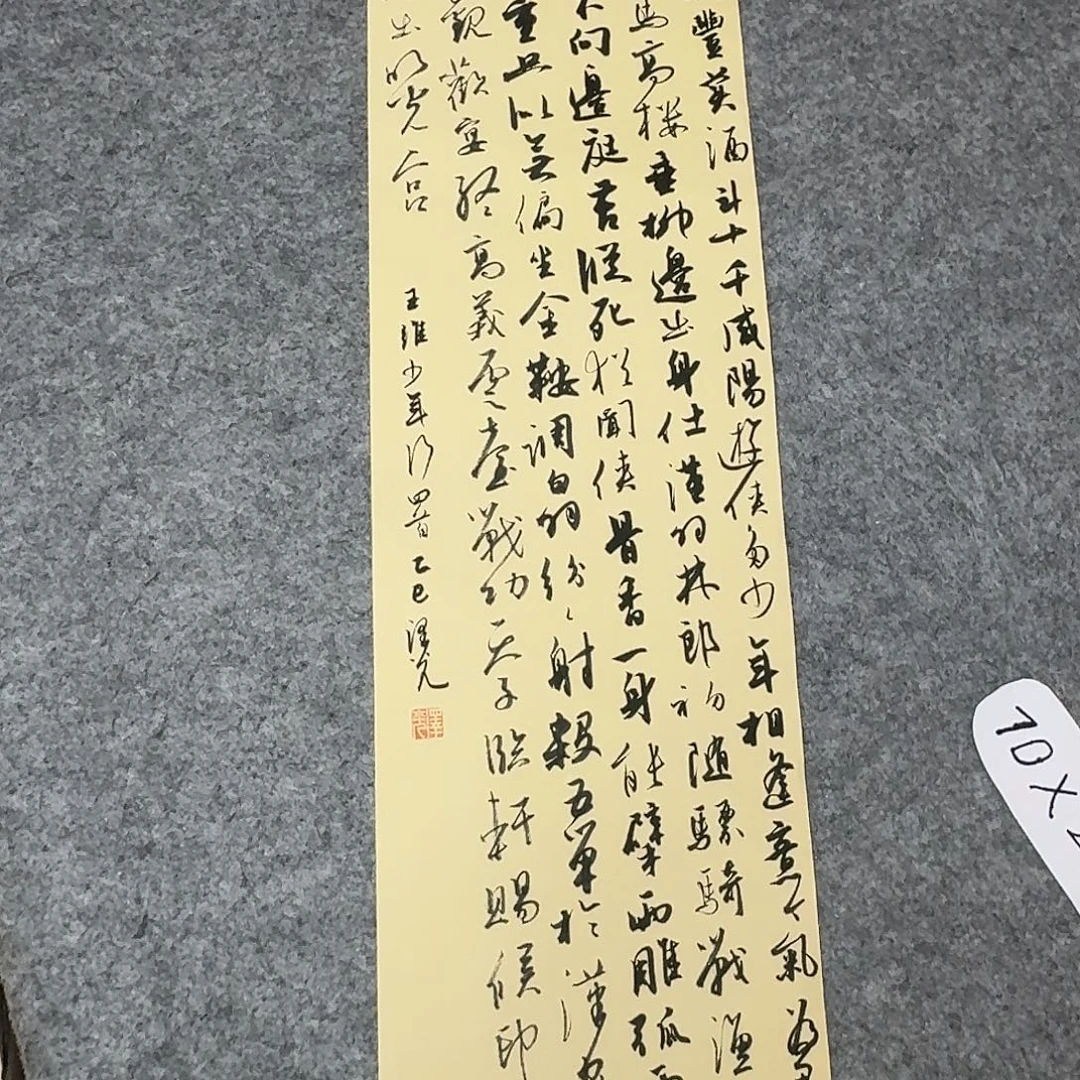 豐美酒斗十千咸陽遊俠多少年相逢意氣為
馬高楼垂柳邊出身仕漢羽林郎初隨驃騎戰漁
不向邊庭苦縱死猶聞俠骨香一身能擘兩雕弧
重只似無偏坐金鞍調白羽紛紛射殺五單於漢家
歡宴終高義雲臺戰功天子臨軒賜侯印
出明光宮
王維少年行四首乙巳
10×